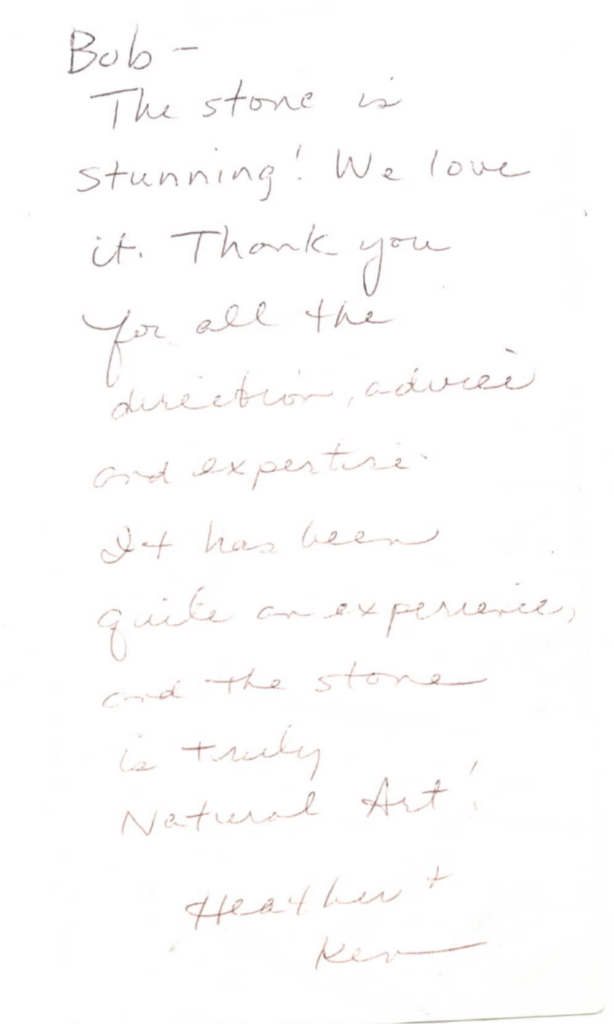 Bob -
The stone is
stunning! We love
it. Thank you
for all the
direction, advice
and expertise.
It has been
quite an experience,
and the stone
is truly
Natural Art!
Heather +
Ken